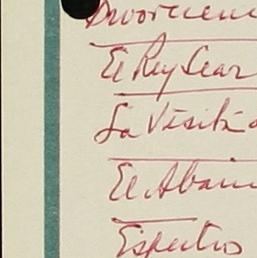 El Rey Lear
La Visita
El Abani
Espectros